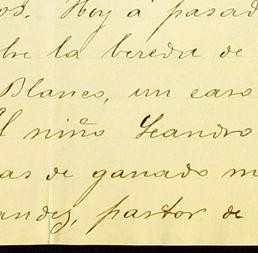 os. Hoy á pasad
bre la bereda de
Blanco, un caso
El niño Leandro
as de ganado m
andez, pastor de